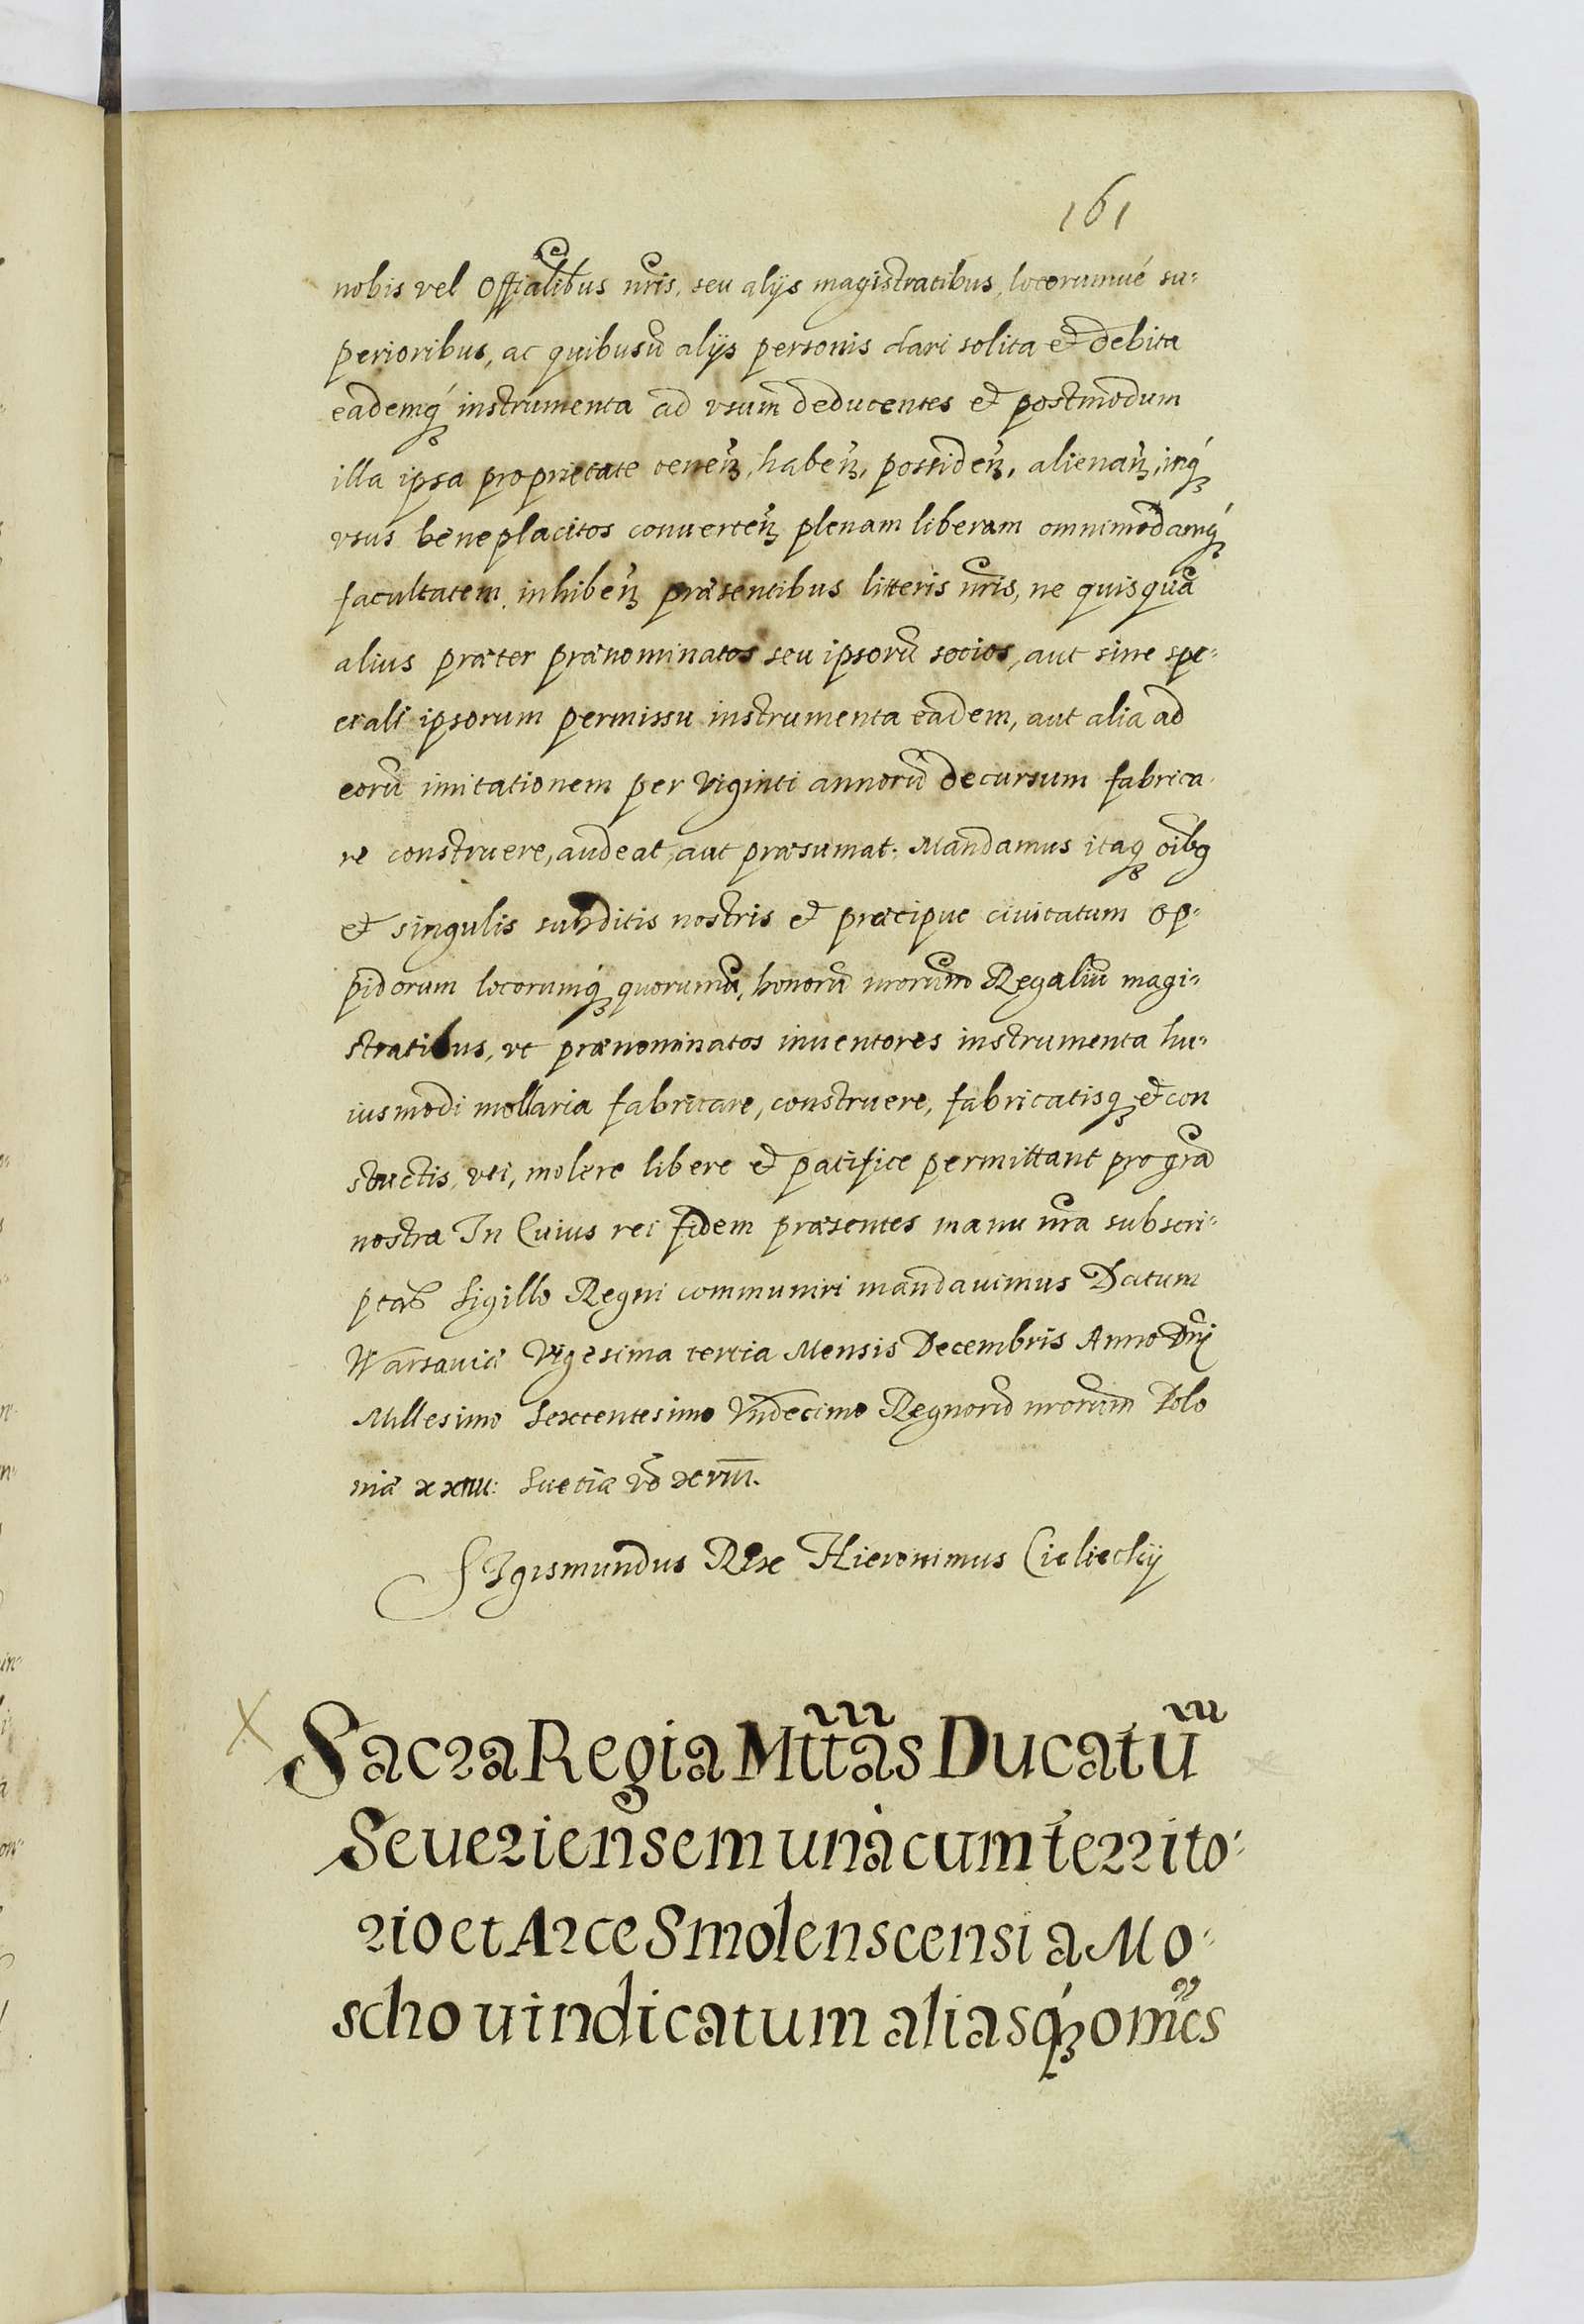 161
nobis vel Offialibus nris, seu alijs magistratibus, locorumué su:
perioribus, ac quibusũ alijs personis dari solita et debita
eademq́ꝫ instrumenta ad vsum deducentes et postmodum
illa ipsa proprietate tenen̄ꝫ, haben̄ꝫ, possiden̄ꝫ, alienan̄ꝫ, inq́ꝫ
vsus beneplacitos converten̄ꝫ plenam liberam omnimodamq́ꝫ
facultatem, inhiben̄ꝫ præsentibus litteris nris, ne quisquã
alius præter prænominatos seu ipsorũ socios, aut sine spe:
ciali ipsorum permissu instrumenta eadem, aut alia ad
eorũ imitationem per viginti annorũ decursum fabrica:
re construere, audeat, aut præsumat. Mandamus itaqꝫ oĩbꝰ
et singulis subditis nostris et præcipue civitatum op:
pidorum locorumq́ꝫ quorumũ, bonorũ nrorum Regaliũ magi:
stratibus, vt prænominatos inventores instrumenta hu:
iusmodi mollaria fabricare, construere, fabricatisqꝫ et con
structis, vti, molere libere et pacifice permittant pro grã
nostra In Cuius rei fidem præsentes manu nra subscri:
ptas Sigillo Regni communiri mandavimus Datum
Warsaviæ Vigesima tertia Mensis Decembris Anno Dñi
Millesimo Sexcentesimo Vndecimo Regnorũ nrorum Polo
niæ xxiiii: Suetiæ vo xviii.
Sigismundus Rex Hieronimus Cieliechÿ
X Sacra Regia Mttas Ducatũ
Severiensem unà cum territo:
rio et Arce Smolenscensi a Mo:
scho vindicatum aliasq́ꝫ omẽs